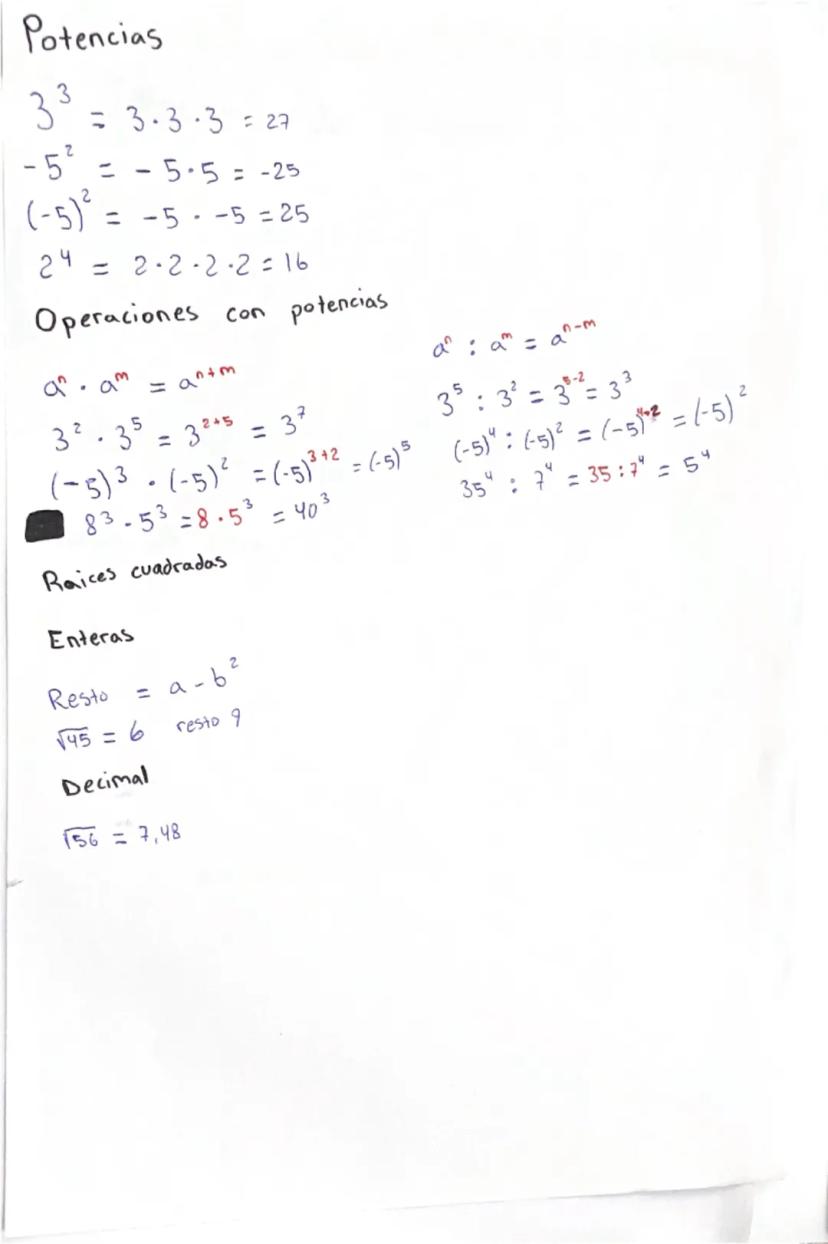 Potencias
3³ = 3·3·3 = 27
-5² = -5·5 = -25
(-5)² = -5 · -5 = 25
2⁴ = 2·2·2·2 = 16
Operaciones con potencias
aⁿ · aᵐ = aⁿ⁺ᵐ
3² · 3⁵ = 3²⁺⁵ = 3⁷
(-5)³ · (-5)² = (-5)³⁺² = (-5)⁵
8³ · 5³ = 8·5³ = 40³
aⁿ : aᵐ = aⁿ⁻ᵐ
3⁵ : 3² = 3⁵⁻² = 3³
(-5)⁴ : (-5)² = (-5)⁴⁻² = (-5)²
35⁴ : 7⁴ = 35:7⁴ = 5⁴
Raices cuadradas
Enteras
Resto = a - b²
√45 = 6 resto 9
Decimal
√56 = 7,48